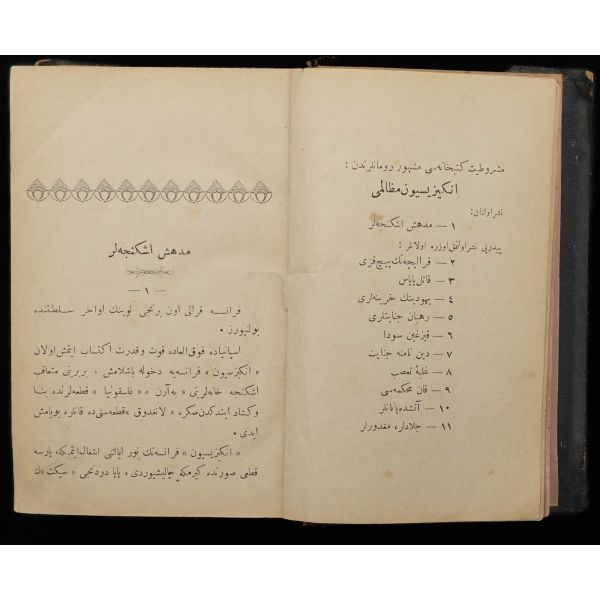 مشروطیت کتبخانه‌سی مشهور رومانلرندن :
انکیزیسیون مظالمی
نشر اولنان:
۱ — مدهش اشکنجه‌لر
پیدرپی نشر اولنمق اوزره اولانلر :
۲ — قرالیچه‌نك پیچ قزی
۳ — قاتل پاپاس
۴ — یهودینك خزینه‌لری
۵ — رهبان جنایتلری
۶ — قیزغین سودا
۷ — دین نامنه جنایت
۸ — غلبهٔ تعصب
۹ — قان محکمه‌سی
۱۰ — آتشده یانانلر
۱۱ — جلادلر، مغدورلر
مدهش اشکنجه‌لر
— ۱ —
فرانسه قرالی اون برنجی لوینك اواخر سلطنتنده
بولنیورز .
اسپانیاده فوق العاده قوت وقدرت اکتساب ایتمش اولان
« انکیزسیون » فرانسه‌یه دخوله باشلامش ، بربرینی متعاقب
اشکنجه خانه‌لرینی « به‌آرن » « غاسقونیا » قطعه‌لرنده بنا
وکشاد ایتدکدن صکره « لانغدوق » قطعه‌سنی‌ده قانلره بویامش
ایدی .
« انکیزیسیون » فرانسه‌نك تور ایالتنی اشغال ایتمکه، پارسه
قطعی صورتده کیرمکه چالیشیوردی ، پاپا دردنجی « سیکست »ك